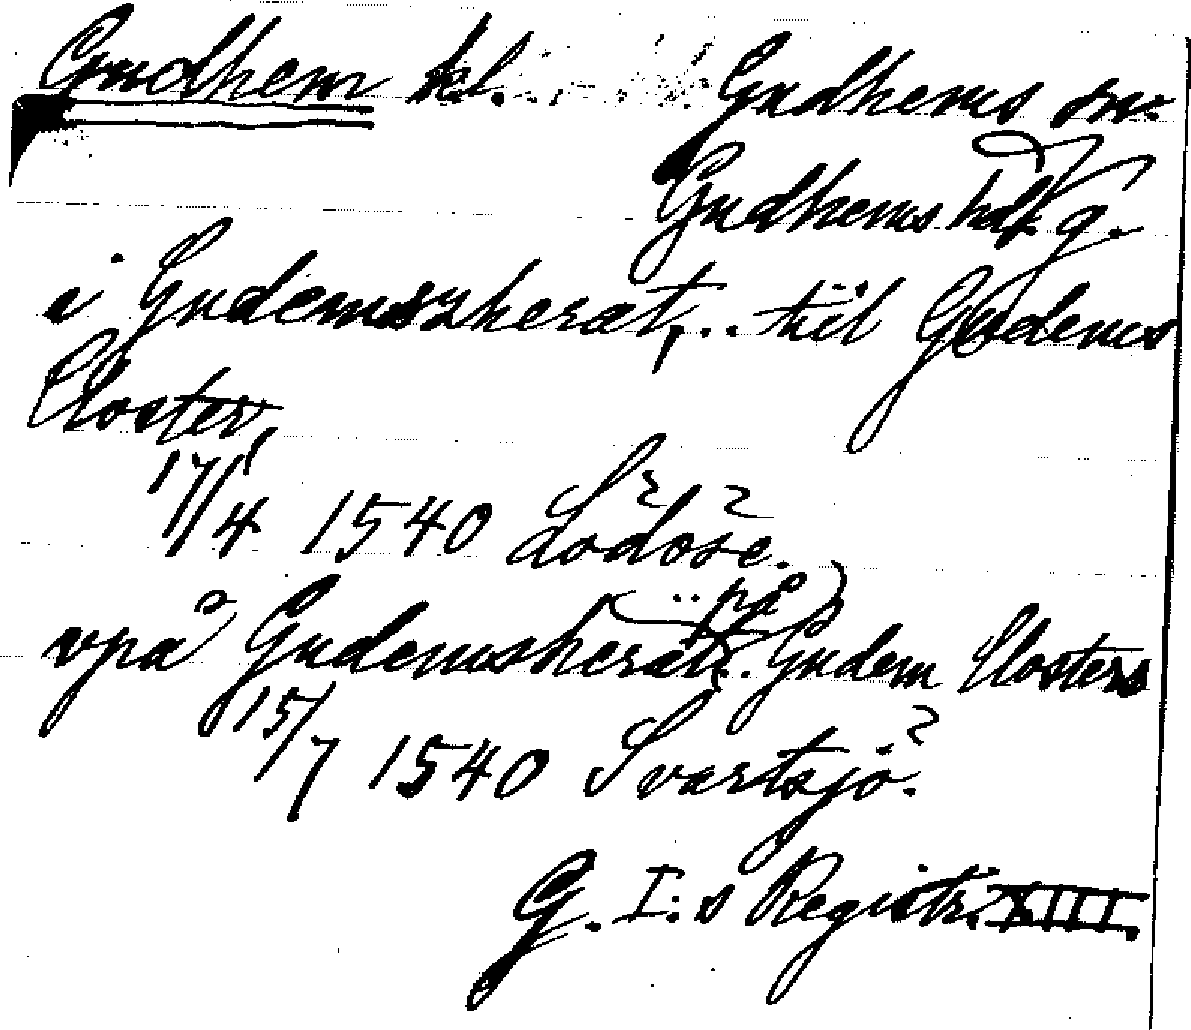 Gudhem kl. Gudhems sn.
Gudhems hd. Vg.
i Gudemszheræt, .. tiil Gudems
Closter,
17/4 1540 Lödöse.
vpå Gudemsheræt .. på Gudem Closters
15/7 1540 Svartsjö.
G. I:s Registr. XIII.